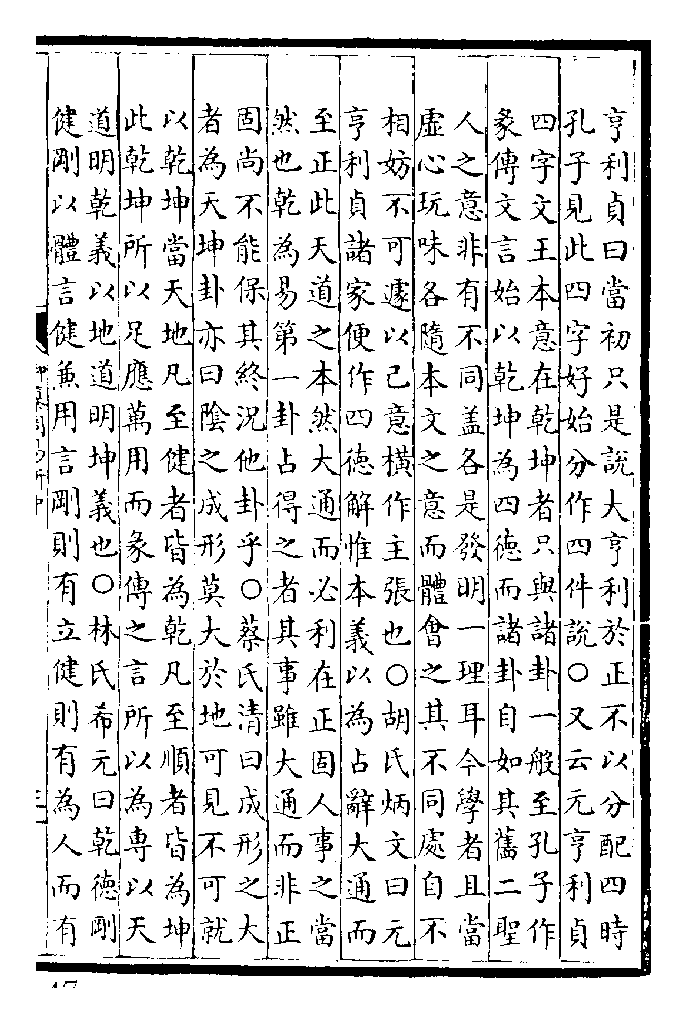 亨利貞曰當初只是說大亨利於正不以分配四時
孔子見此四字好始分作四件說○又云元亨利貞
四字文王本意在乾坤者只與諸卦一般至孔子作
彖傳文言始以乾坤為四德而諸卦自如其舊二聖
人之意非有不同盖各是發明一理耳今學者且當
虛心玩味各隨本文之意而體會之其不同處自不
相妨不可遽以己意橫作主張也○胡氏炳文曰元
亨利貞諸家便作四德解惟本義以為占辭大通而
至正此天道之本然大通而必利在正固人事之當
然也乾為易第一卦占得之者其事雖大通而非正
固尚不能保其終況他卦乎○蔡氏清曰成形之大
者為天坤卦亦曰陰之成形莫大於地可見不可就
以乾坤當天地凡至健者皆為乾凡至順者皆為坤
此乾坤所以足應萬用而彖傳之言所以為專以天
道明乾義以地道明坤義也○林氏希元曰乾德剛
健剛以體言健兼用言剛則有立健則有為人而有